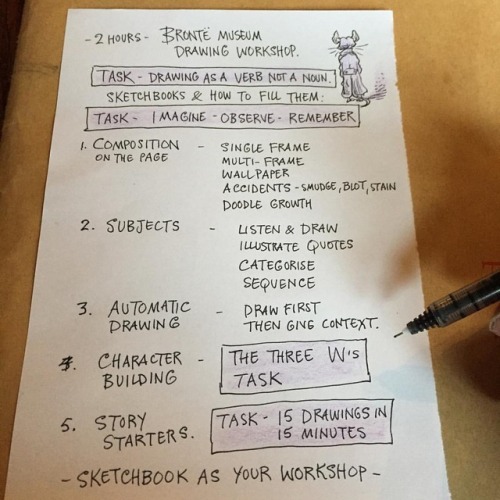 - 2 HOURS - BRONTË MUSEUM
DRAWING WORKSHOP.
TASK - DRAWING AS A VERB NOT A NOUN.
SKETCHBOOKS & HOW TO FILL THEM:
TASK - IMAGINE - OBSERVE - REMEMBER
1. COMPOSITION - SINGLE FRAME
ON THE PAGE MULTI-FRAME
WALLPAPER
ACCIDENTS - SMUDGE, BLOT, STAIN
DOODLE GROWTH
2. SUBJECTS - LISTEN & DRAW
ILLUSTRATE QUOTES
CATEGORISE
SEQUENCE
3. AUTOMATIC - DRAW FIRST
DRAWING THEN GIVE CONTEXT.
4. CHARACTER - THE THREE W'S
BUILDING TASK
5. STORY TASK - 15 DRAWINGS IN
STARTERS. 15 MINUTES
- SKETCHBOOK AS YOUR WORKSHOP -